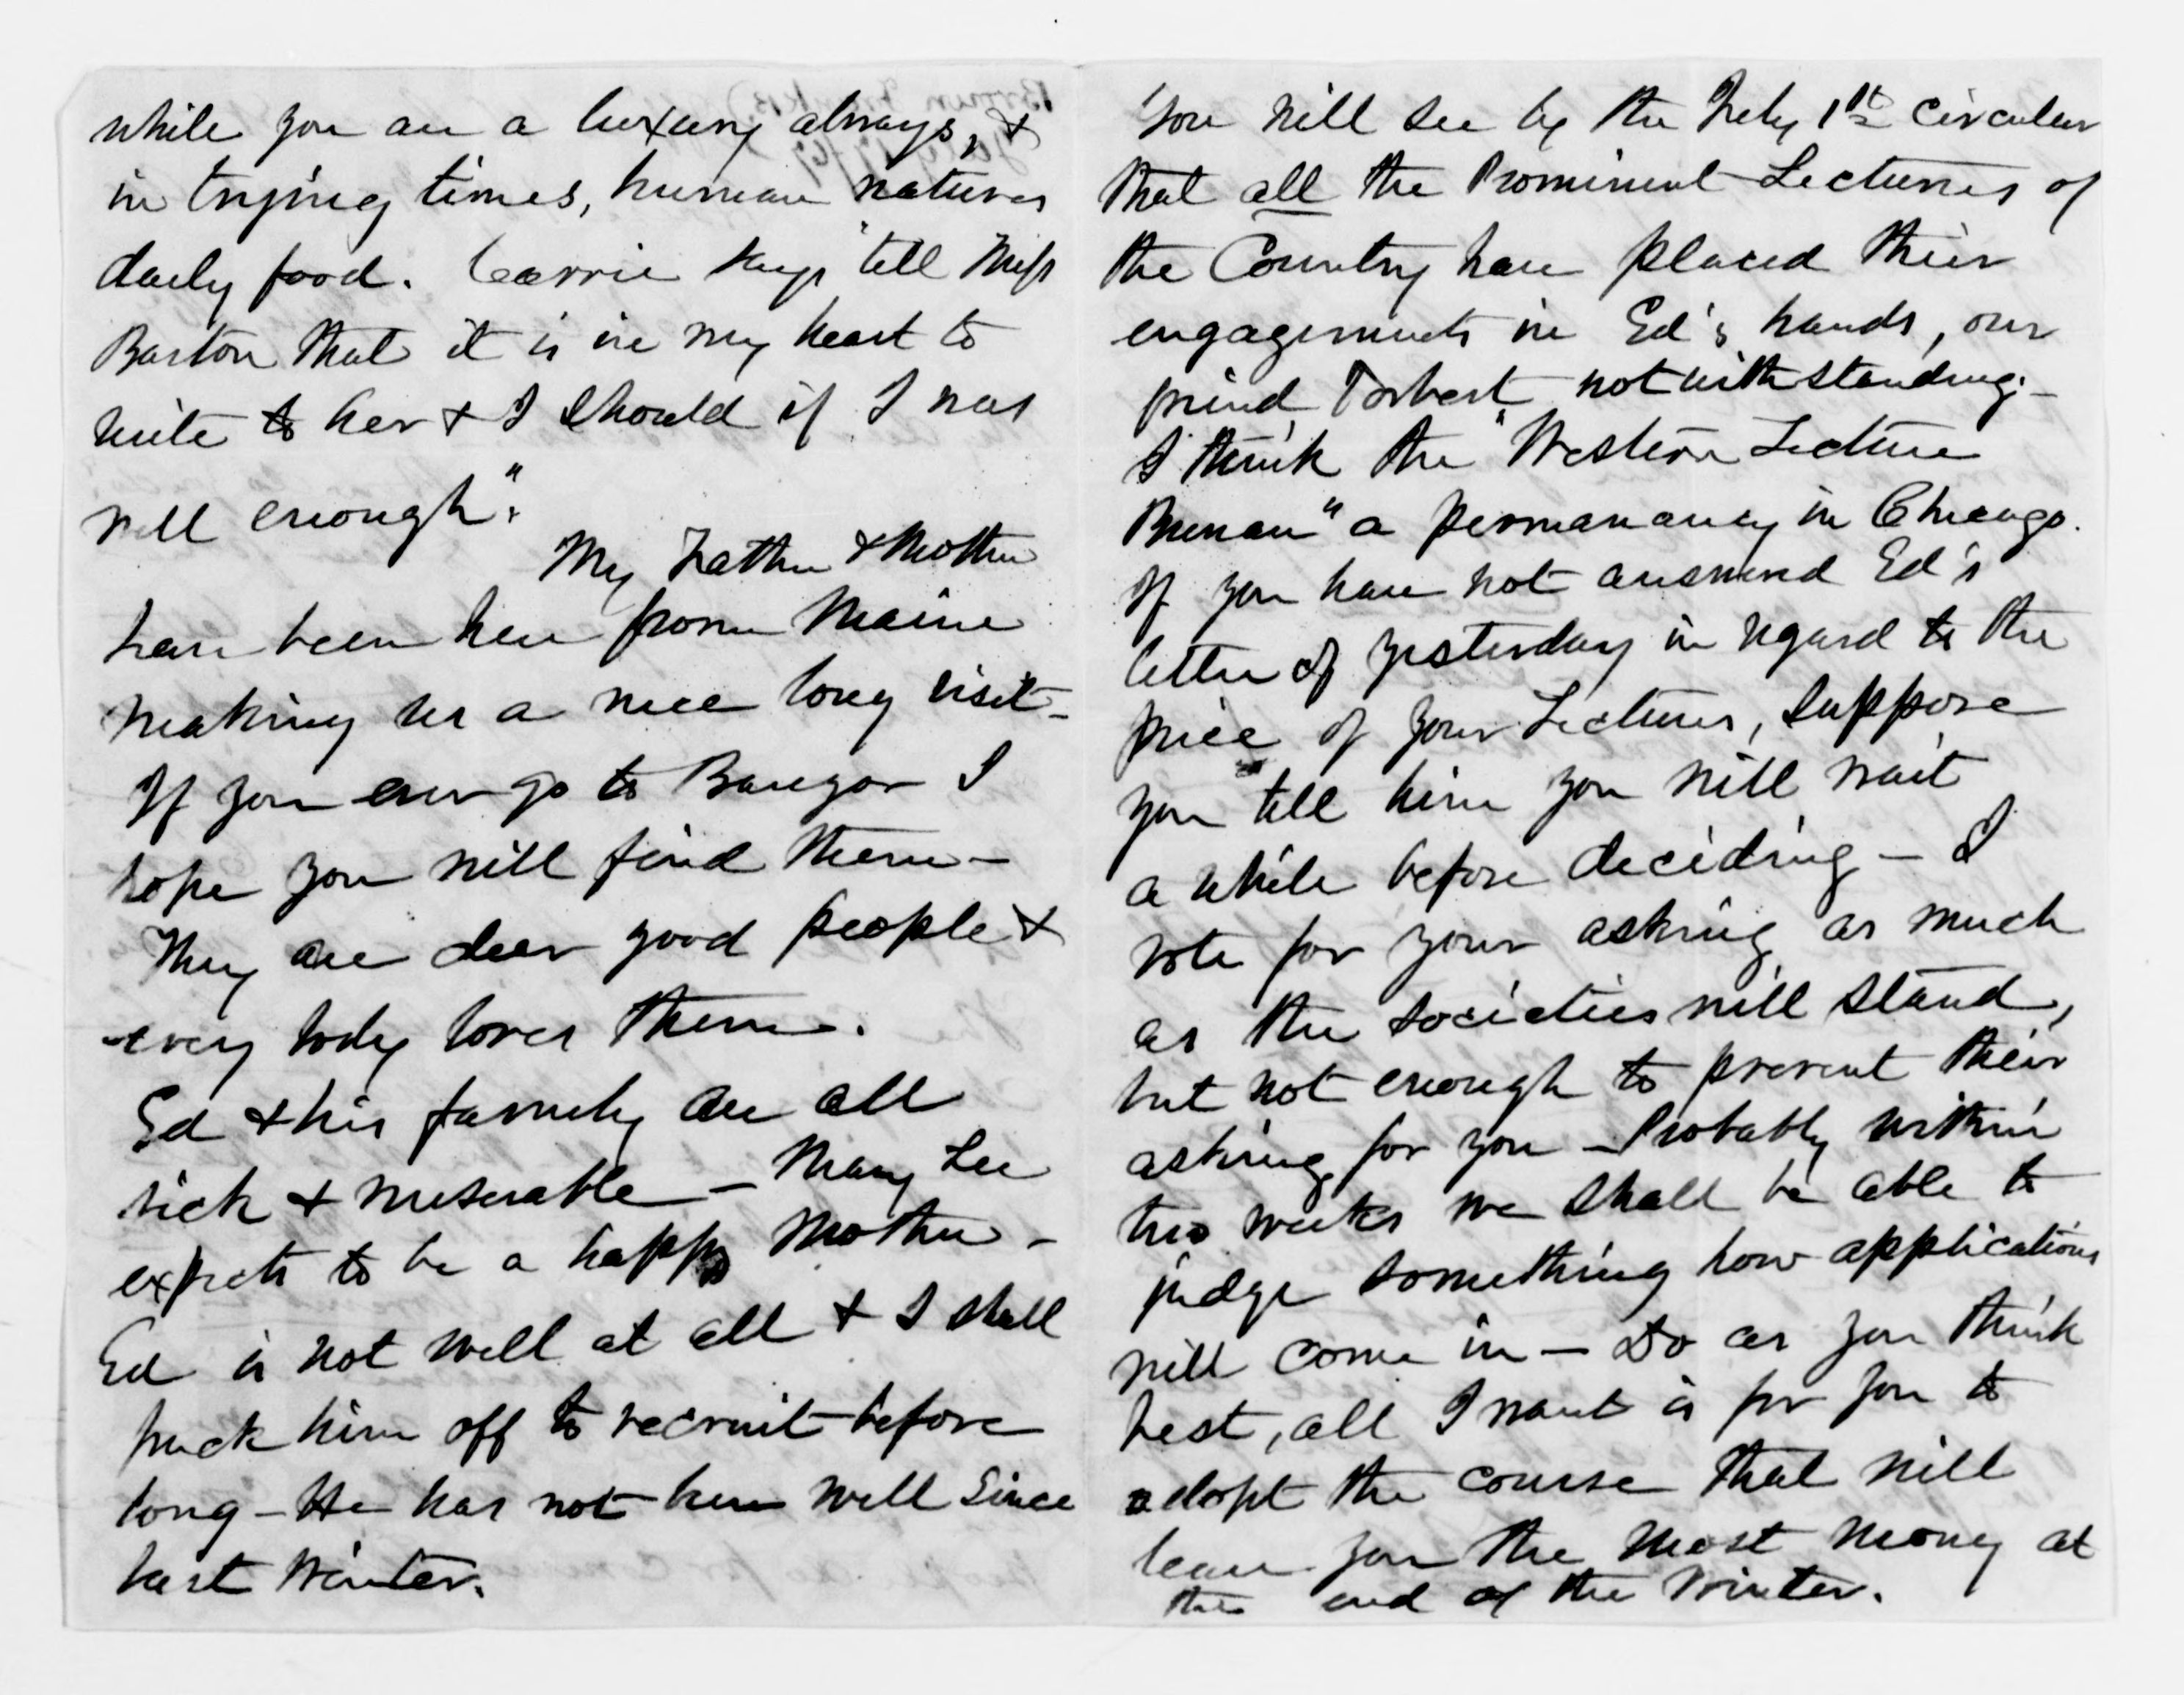 while you are a luxury always, &
in trying times, human natures
daily food. Carrie says "tell Miss
Barton that it is in my heart to
write to her & I should if I was
well enough".
My Father & Mother
have been here from Maine
making us a nice long visit -
If you ever go to Bangor I
hope you will find them -
They are dear good people &
every body loves them.
Ed & his family are all
sick & miserable - Mary Lee
expects to be a happy Mother -
Ed is not well at all & I shall
pack him off to recruit before
long - He has not been well since
last Winter.
You will see by the July 1st circular
that all the Prominent Lecturers of
the Country have placed their
engagements in Ed's hands, our
friend Torbert notwithstanding -
I think the "Western Lecture
Bureau" a permanancy in Chicago.
If you have not answered Ed's
letter of yesterday in regard to the
price of your Lectures, suppose
you tell him you will wait
a while before deciding - I
vote for your asking as much
as the societies will stand,
but not enough to prevent their
asking for you - Probably within
two weeks we shall be able to
judge something how applications
will come in - Do as you think
best, all I want is for you to
adopt the course that will
leave you the most money at
the end of the Winter.